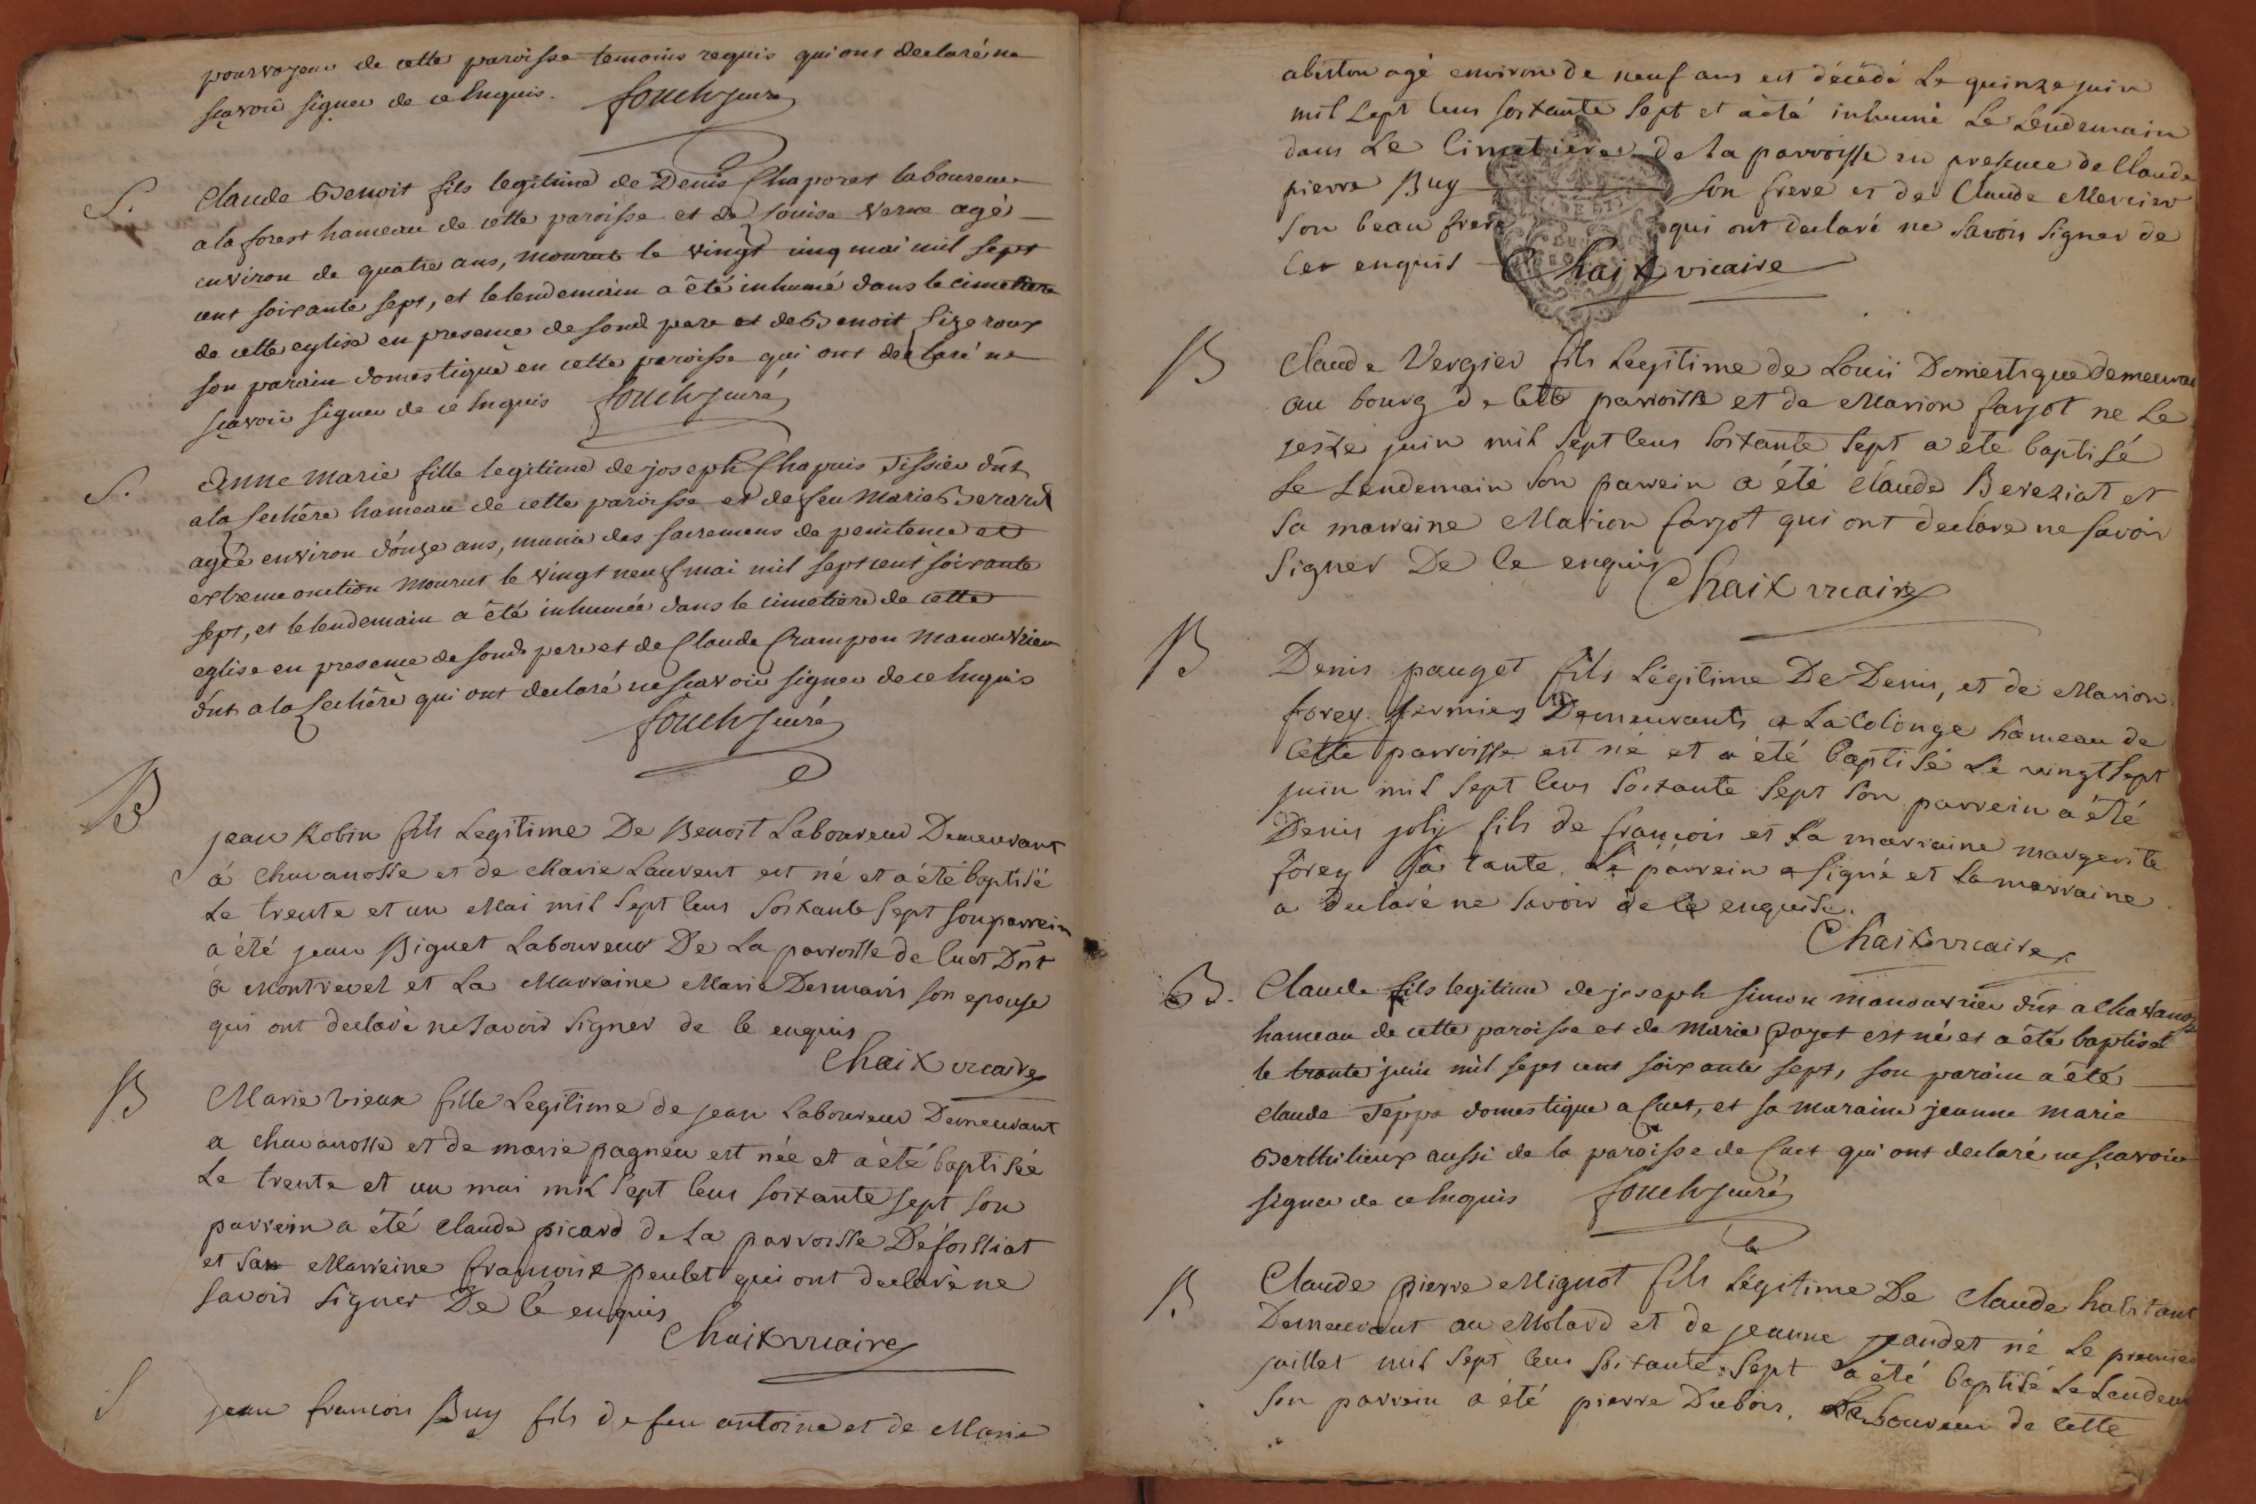 pourvoyeur de cette paroisse temoins requis qui ont declaré ne
sçavoir signer de ce Enquis. fouch curé
S. Claude Benoit fils legitime de Denis Chaporet laboureur
a la forest hameau de cette paroisse et de Louise Verne agé
environ de quatre ans, mourut le vingt cinq mai mil sept
cent soixante sept, et le lendemain a été inhumé dans le cimetiere
de cette eglise en presence de son pere et de Benoit Sizeroux
son parain domestique en cette paroisse qui ont declaré ne
sçavoir signer de ce Enquis fouch curé
S. Anne marie fille legitime de joseph Chapuis Tissier dnt
a la hameau de cette paroisse et de feu Marie Berard
agée environ d'onze ans, munie des sacremens de penitence et
extreme onction mourut le vingt neuf mai mil sept cent soixante
sept, et le lendemain a été inhumée dans le cimetiere de cette
eglise en presence de son pere et de Claude Crampon Manouvrier
dnt a la qui ont declaré ne sçavoir signer de ce Enquis
fouch curé
B jean Robin fils Legitime De Benoit Laboureur Demeurant
à Chavanosse et de Marie Laurent est né et a été baptisé
Le trente et un Mai mil Sept Cens Soixante Sept son parrein
a été jean Biguet Laboureur De La parroisse de Cuet Dnt
à Montrevel et La Marraine Marie Desmaris son epouse
qui ont declaré ne savoir signer de ce enquis
Chaix vicaire
B Marie vieux fille Legitime de jean Laboureur Demeurant
a chavanosse et de marie pagneu est née et a été baptisée
Le trente et un mai mil Sept Cens soixante sept son
parrein a été claude picard de La parroisse De foissiat
et Sa Marreine francoise peulet qui ont declaré ne
savoir signer De Cé enquis
Chaix vicaire
S jean francois Buy fils de feu antoine et de Marie
abiston agé environ de neuf ans est décédé Le quinze juin
mil Sept Cens soixante Sept et a été inhumé Le Lendemain
dans Le Cimetiere de La parroisse en presence de Claude
pierre Buy son frere et de Claude Mercier
son beau frere qui ont declaré ne savoir signer de
Ce enquis Chaix vicaire
B Claude Vergier fils Legitime de Louis Domestique demeurant
au bourg de Cette parroisse et de Marion farjot ne Le
seize juin mil Sept Cens Soixante Sept a été baptisé
Le Lendemain Son parrein a été Claude Bereziat et
Sa marraine Marion farjot qui ont declare ne savoir
Signer De Ce enquis
Chaix vicaire
B Denis pauget fils Légitime De Denis, et de Marion
forey fermiers Demeurants a La Colonge hameau de
Cette parroisse est né et a été baptisé Le vingt Sept
juin mil Sept Cens Soixante Sept Son parrein a été
Denis joly fils de françois et Sa marraine margerite
forey Sa tante. Le parrein a signé et La marraine
a declaré ne savoir de Ce enquise.
Chaix vicaire
B. Claude fils legitime de joseph simon manouvrier dnt a Chavanosse
hameau de cette paroisse et de Marie est né et a été baptisé
le trente juin mil sept cent soixante sept, son parain a été
claude Teppe domestique a Cuet, et sa maraine jeanne marie
Berthilieux aussi de la paroisse de Cuet qui ont declaré ne sçavoir
signer de ce Enquis fouch curé
B. Claude pierre Mignot fils Légitime De Claude habitant
Demeurant au Molard et de jeanne né Le premier
juillet mil Sept Cens Soixante Sept a été baptisé Le Lendem
Son parrein a été pierre Dubois, Laboureur de Cette